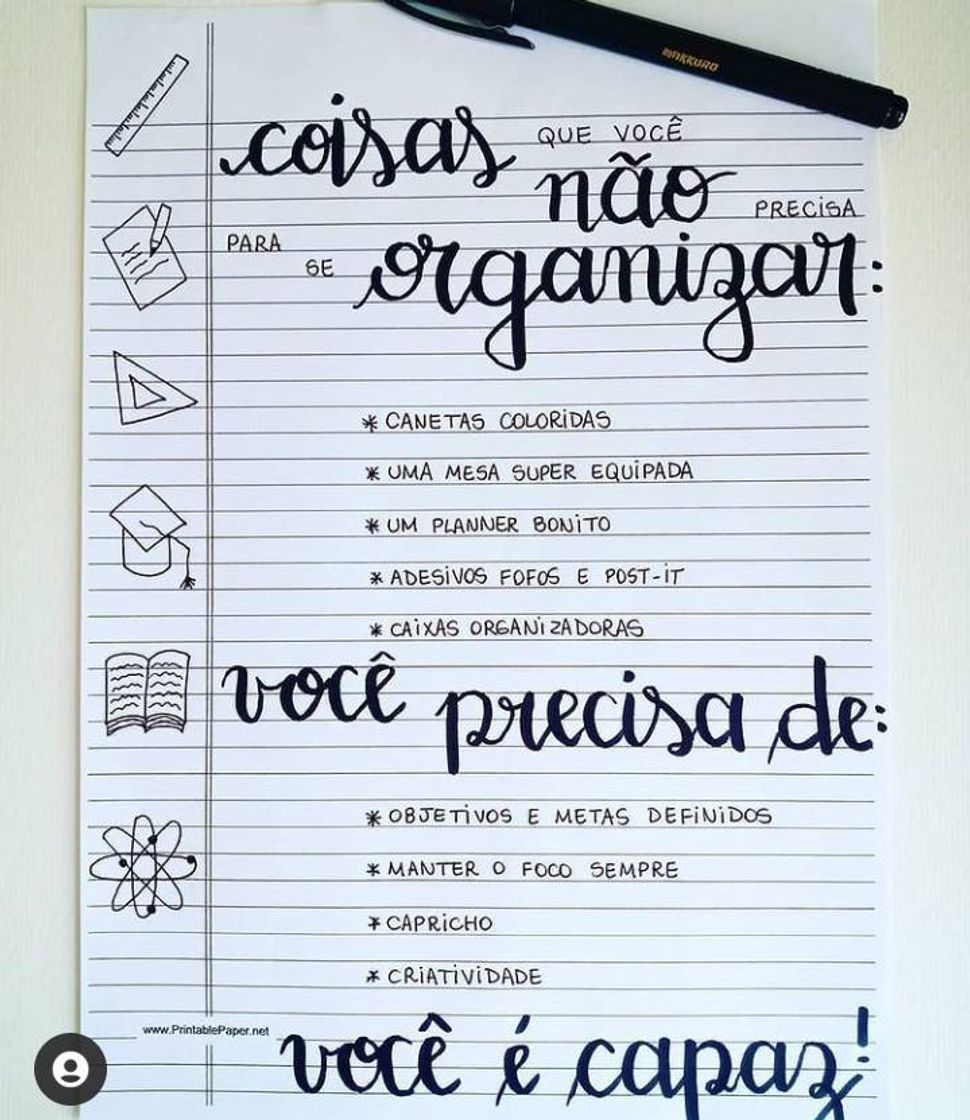 MAKKURO
coisas QUE VOCÊ
não PRECISA
PARA
SE organizar:
* CANETAS COLORIDAS
* UMA MESA SUPER EQUIPADA
* UM PLANNER BONITO
* ADESIVOS FOFOS E POST-IT
* CAIXAS ORGANIZADORAS
você precisa de:
* OBJETIVOS E METAS DEFINIDOS
* MANTER O FOCO SEMPRE
* CAPRICHO
* CRIATIVIDADE
www.PrintablePaper.net
você é capaz!